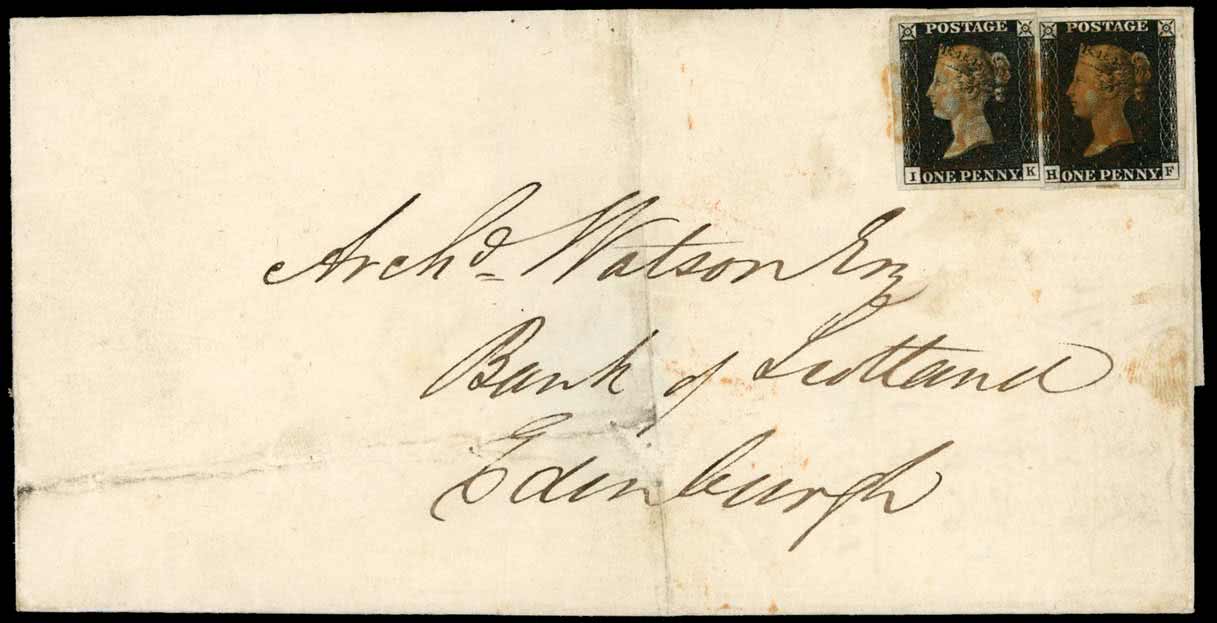 POSTAGE POSTAGE
I ONE PENNY. K H ONE PENNY. F
Archd. Watson Esq
Bank of Scotland
Edinburgh